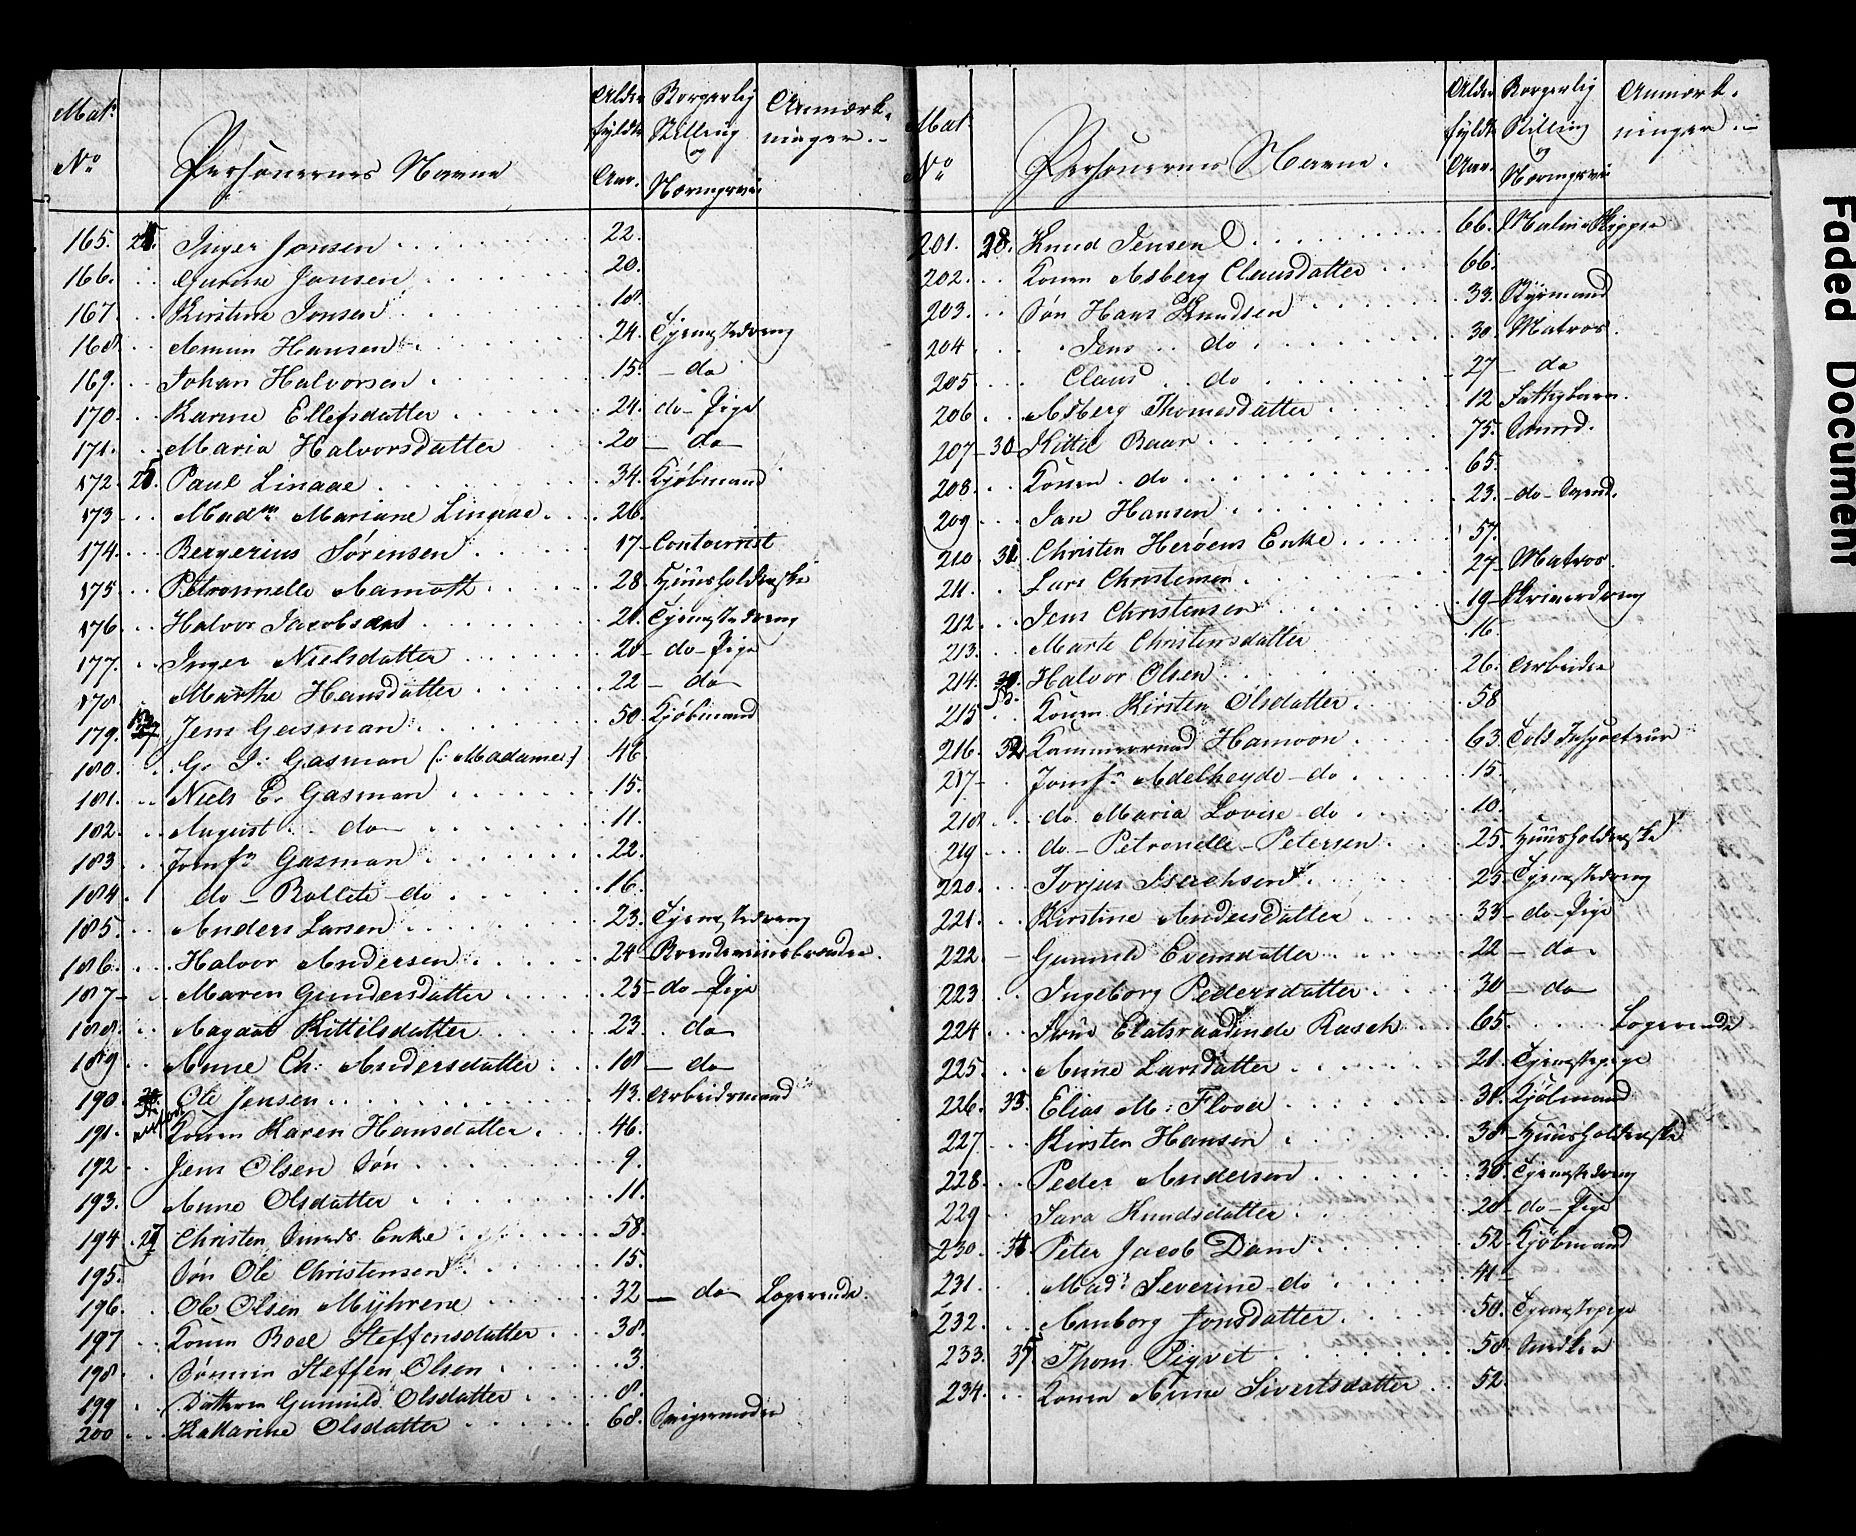 Mat: No Personernes Navne Alder fyldte Aar. Borgerlig Stilling og Næringsvei Anmærkninger.
165. Inger Jonsen 22.
166. Gurine Jonsen 20.
167. Kirstine Jonsen 18.
168. Amun Hansen 24. Tjenestedreng
169. Johan Halvorsen 15. do
170. Karine Ellefsdatter 24. do Pige
171. Maria Halvorsdatter 20 do
172. 25. Paul Linaae 34. Kjøbmand
173 Madm Mariane Linaae 26.
174. Bergerius Sørensen 17 Contoirist
175 Petronnelle Aamoth 28. Huusholderske
176 Halvor Jacobsen 21. Tjenestedreng
177. Inger Nielsdatter 20 do Pige
178 Marthe Hansdatter 22 do
179. Jens Gasman 50. Kjøbmand
180. G. J: Gasman (: Madame :) 48.
181. Niels E. Gasman 15.
182. August do 11.
183. Jomfr Gasman 22.
184. do Bollete do 16.
185. Anders Larsen 23. Tjenestedreng
186. Halvor Andersen 24
187 Maren Gundersdatter 25 do Pige
188. Aagaat Kittilsdatter 23. do
189 Anne Ch: Andersdatter 18 do
190. Ole Jensen 43. Arbeidsmand
191. Konen Karen Hansdatter 46.
192 Jens Olsen Søn 9.
193. Anne Olsdatter 11.
194 27 Christen Smeds Enke 58.
195. Søn Ole Christensen 15.
196. Ole Olsen Myhrene 32 do Logerende.
197 Konen Boel Steffensdatter 38.
198. Sønnen Steffen Olsen 3.
199 Datteren Gunnild Olsdatter 8.
200 Katarine Olsdatter 68. Svigermoder
Mat: No Personernes Navne. Alder fyldte Aar. Borgerlig Stilling og Næringsvei Anmærkninger.
201. 28. Knud Jensen 66. Skipper
202. Konen Asberg Clausdatter 66.
203. Søn Hans Knudsen 33. Styrmand
204 Jens do 30. Matros.
205 Claus do 27 do
206 Asberg Thomesdatter 12
207 30 Kittil Baar 75. Smed.
208. Konen do 65.
209 Jan Hansen 23. do Svend.
210 31 Christen Herøens Enke 57.
211. Lars Christensen 27 Matros.
212 Jens Christensen 19 Skriverdreng
213. Marte Christensdatter 16.
214. Halvor Olsen 26. Arbeider
215 Konen Kirsten Olsdatter 58
216 32 Kammerraad Hamoon 63. Told Inspecteur
217 Jomfr Adelheyde do 15.
218 do Maria Lovise do 10.
219 do Petronelle Petersen 25. Huusholderske
220. Torjus Isachsen 25 Tjenestedreng
221. Kirstine Andersdatter 33 do Pige
222. Gunnild Evensdatter 22 do
223 Ingeborg Pedersdatter 30 do
224 Frue Etatsraadinde Rasch 65. Logerende
225. Anne Larsdatter 21. Tjenestepige
226. 33. Elias M: Flood 38. Kjøbmand
227 Kirsten Hansen 38 Huusholderske
228. Peder Andersen 30. Tjenestedreng
229 Sara Knudsdatter 20 do Pige
230. Peter Jacob Dam 52. Kjøbmand
231 Mad: Severine do 41
232. Amborg Jonsdatter 50. Tjenestepige
233. 35 Thom Pigvet 58. Snedker
234. Konen Anne Sivertsdatter 52.
Faded Document